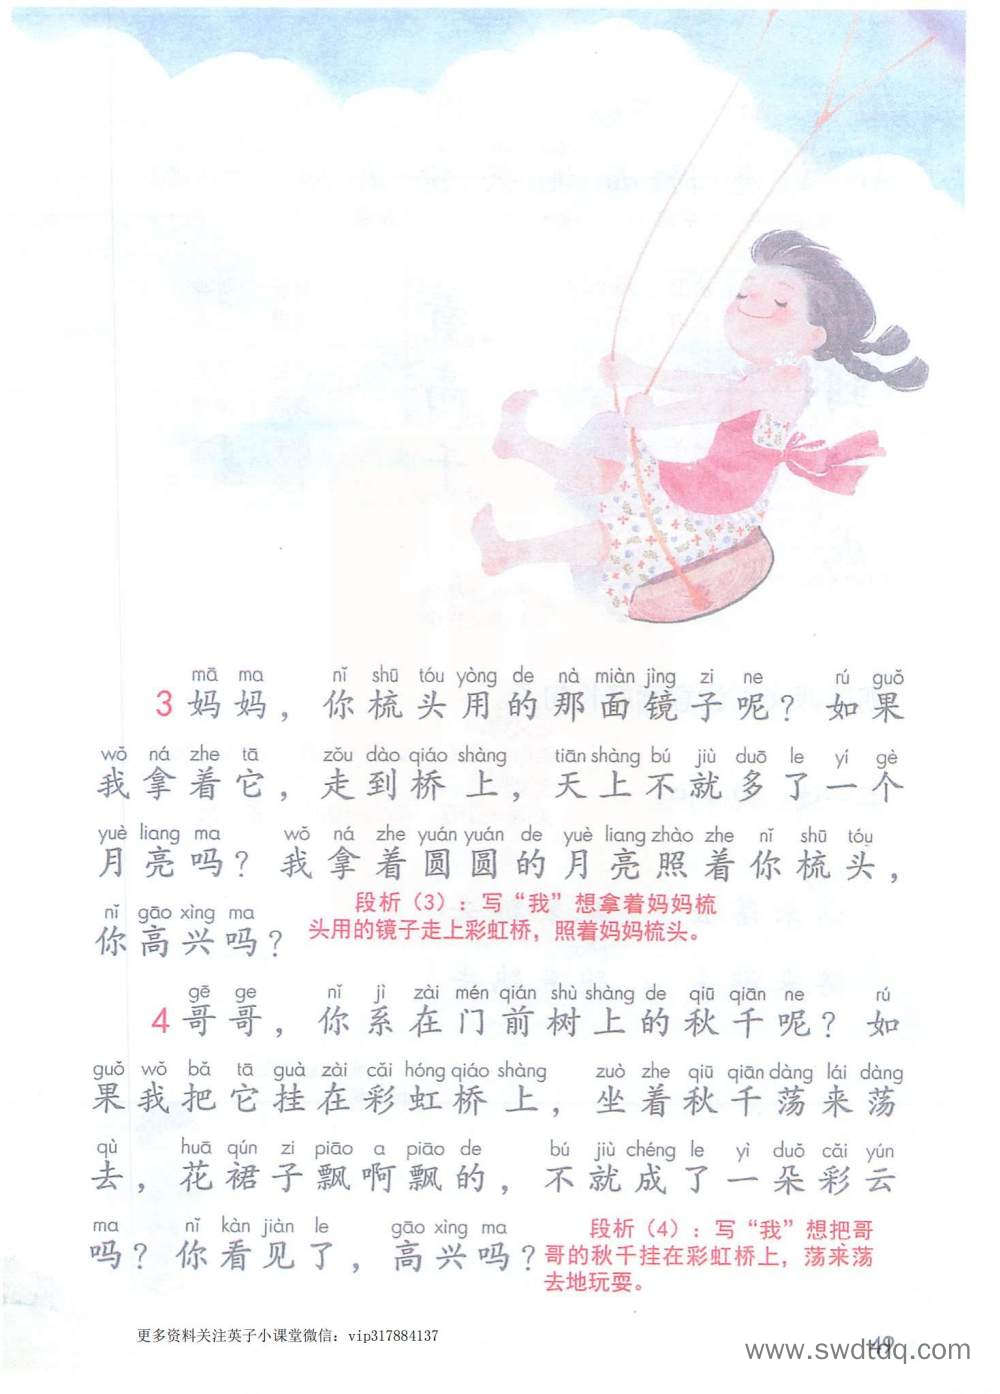 mā ma nǐ shū tóu yòng de nà miàn jìng zi ne rú guǒ
3 妈妈，你梳头用的那面镜子呢？如果
wǒ ná zhe tā zǒu dào qiáo shàng tiān shàng bú jiù duō le yí gè
我拿着它，走到桥上，天上不就多了一个
yuè liang ma wǒ ná zhe yuán yuán de yuè liang zhào zhe nǐ shū tóu
月亮吗？我拿着圆圆的月亮照着你梳头，
段析（3）：写“我”想拿着妈妈梳
头用的镜子走上彩虹桥，照着妈妈梳头。
nǐ gāo xìng ma
你高兴吗？
gē ge nǐ jì zài mén qián shù shàng de qiū qiān ne rú
4 哥哥，你系在门前树上的秋千呢？如
guǒ wǒ bǎ tā guà zài cǎi hóng qiáo shàng zuò zhe qiū qiān dàng lái dàng
果我把它挂在彩虹桥上，坐着秋千荡来荡
qù huā qún zi piāo a piāo de bú jiù chéng le yì duǒ cǎi yún
去，花裙子飘啊飘的，不就成了一朵彩云
ma nǐ kàn jiàn le gāo xìng ma
吗？你看见了，高兴吗？
段析（4）：写“我”想把哥
哥的秋千挂在彩虹桥上，荡来荡
去地玩耍。
更多资料关注英子小课堂微信：vip317884137
49
www.swdtdq.com